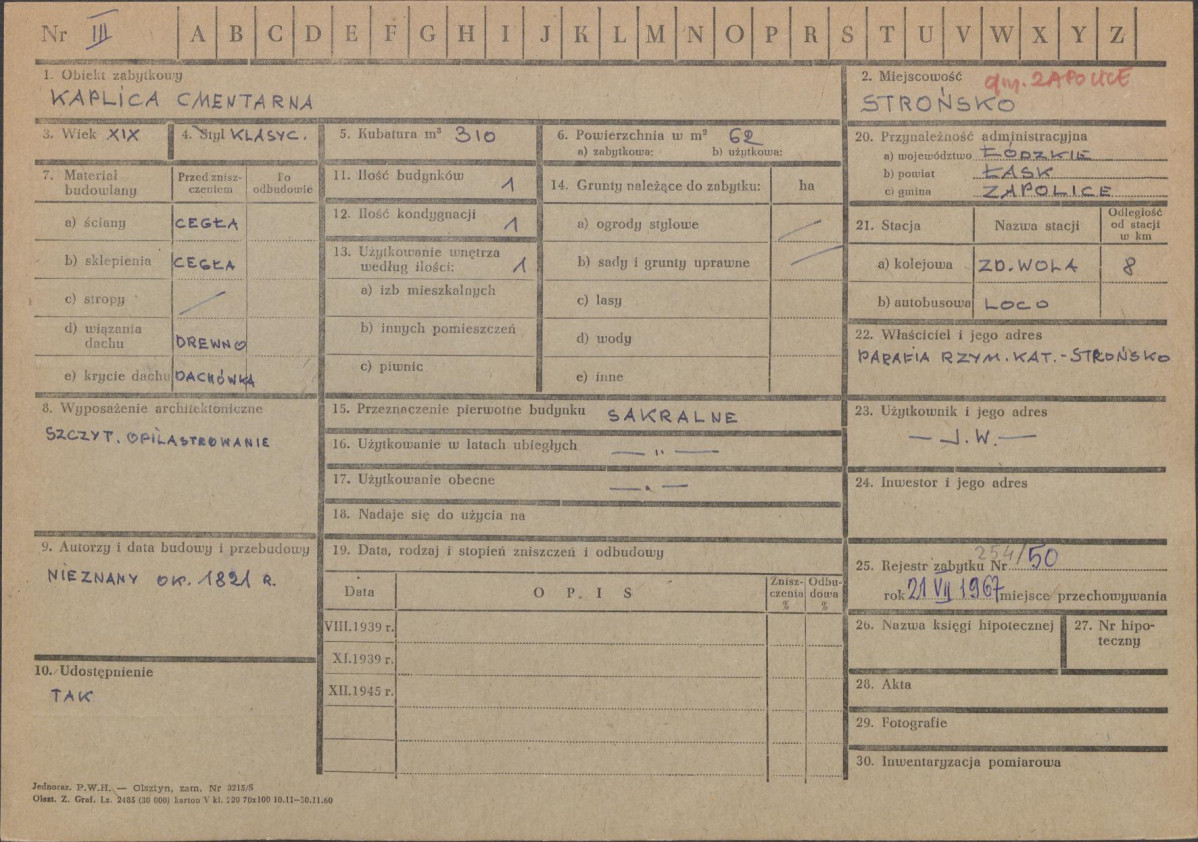 Nr III A B C D E F G H I J K L M N O P R S T U V W X Y Z
1. Obiekt zabytkowy
KAPLICA CMENTARNA
2. Miejscowość gm. ZAPOLICE
STROŃSKO
3. Wiek XIX
4. Styl KLASYC.
5. Kubatura m³ 310
6. Powierzchnia w m² 62
a) zabytkowa: b) użytkowa:
7. Materiał budowlany
Przed zniszczeniem
Po odbudowie
a) ściany CEGŁA
b) sklepienia CEGŁA
c) stropy /
d) wiązania dachu DREWNO
e) krycie dachu DACHÓWKA
8. Wyposażenie architektoniczne
SZCZYT. OPILASTROWANIE
9. Autorzy i data budowy i przebudowy
NIEZNANY OK. 1821 R.
10. Udostępnienie
TAK
11. Ilość budynków 1
12. Ilość kondygnacji 1
13. Użytkowanie wnętrza
według ilości: 1
a) izb mieszkalnych
b) innych pomieszczeń
c) piwnic
14. Grunty należące do zabytku: ha
a) ogrody stylowe /
b) sady i grunty uprawne /
c) lasy
d) wody
e) inne
15. Przeznaczenie pierwotne budynku SAKRALNE
16. Użytkowanie w latach ubiegłych — " —
17. Użytkowanie obecne — " —
18. Nadaje się do użycia na
19. Data, rodzaj i stopień zniszczeń i odbudowy
Data O P I S Zniszczenia % Odbudowa %
VIII.1939 r.
XI.1939 r.
XII.1945 r.
20. Przynależność administracyjna
a) województwo ŁÓDZKIE
b) powiat ŁASK
c) gmina ZAPOLICE
21. Stacja Nazwa stacji Odległość od stacji w km
a) kolejowa ZD. WOLA 8
b) autobusowa LOCO
22. Właściciel i jego adres
PARAFIA RZYM. KAT. - STROŃSKO
23. Użytkownik i jego adres
— J.W. —
24. Inwestor i jego adres
25. Rejestr zabytku Nr 254/50
rok 21 VII 1967 miejsce przechowywania
26. Nazwa księgi hipotecznej
27. Nr hipoteczny
28. Akta
29. Fotografie
30. Inwentaryzacja pomiarowa
Jednoraz. P.W.H. — Olsztyn, zam. Nr 3215/S
Olszt. Z. Graf. Lz. 2485 (30 000) karton V kl. 220 70x100 10.11—30.11.60